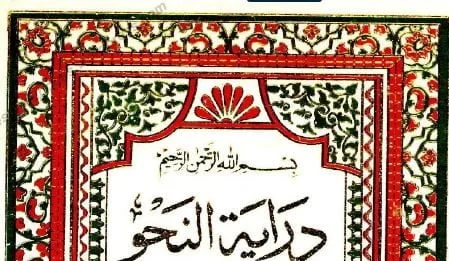 بسم الله الرحمن الرحيم
دراية النحو